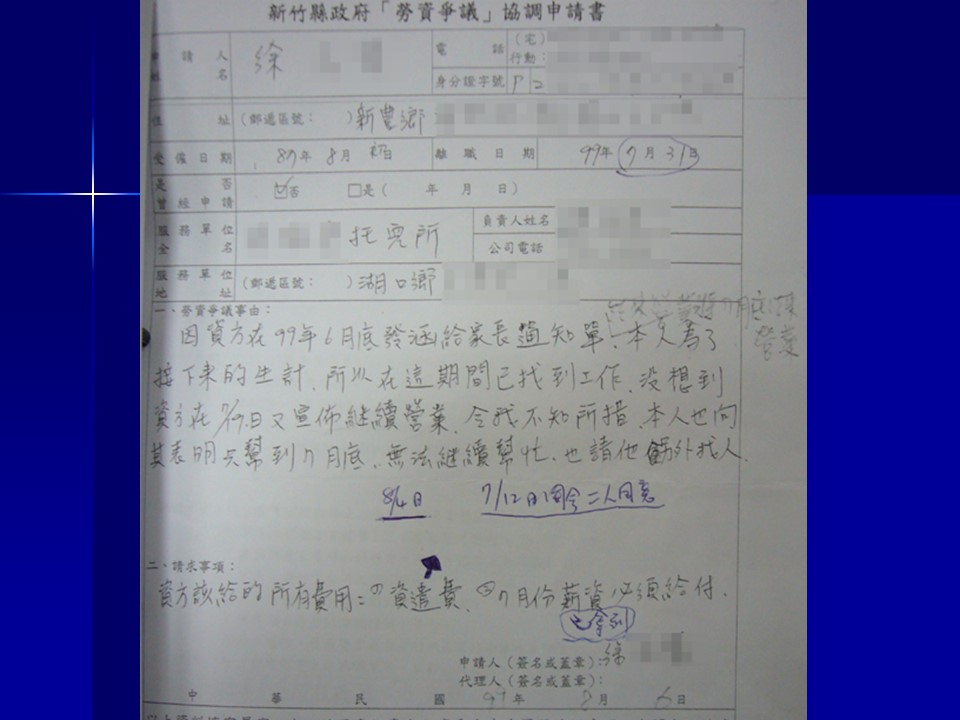 新竹縣政府「勞資爭議」協調申請書
申請人姓名 徐 電話 (宅) 行動:
身分證字號
住址 (郵遞區號: )新豐鄉
受僱日期 87年 8月 日 離職日期 99年 7月 31日
是否曾經申請 ☑否 □是( 年 月 日)
服務單位全名 托兒所 負責人姓名
公司電話
服務單位地址 (郵遞區號: )湖口鄉
一、勞資爭議事由:
營業
因資方在99年6月底發函給家長通知單、本人為了
接下來的生計、所以在這期間已找到工作、沒想到
資方在7/9日又宣佈繼續營業、令我不知所措、本人也向
其表明只幫到7月底、無法繼續幫忙、也請他另外找人.
7/12日
二、請求事項:
資方該給的所有費用:①資遣費、②7月份薪資必須給付.
已拿到
申請人(簽名或蓋章):徐
代理人(簽名或蓋章):
中 華 民 國 99年 8月 6日